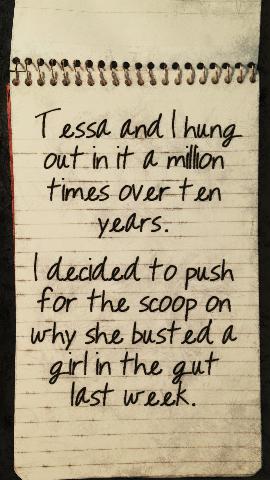 Tessa and I hung
out in it a million
times over ten
years.
I decided to push
for the scoop on
why she busted a
girl in the gut
last week.